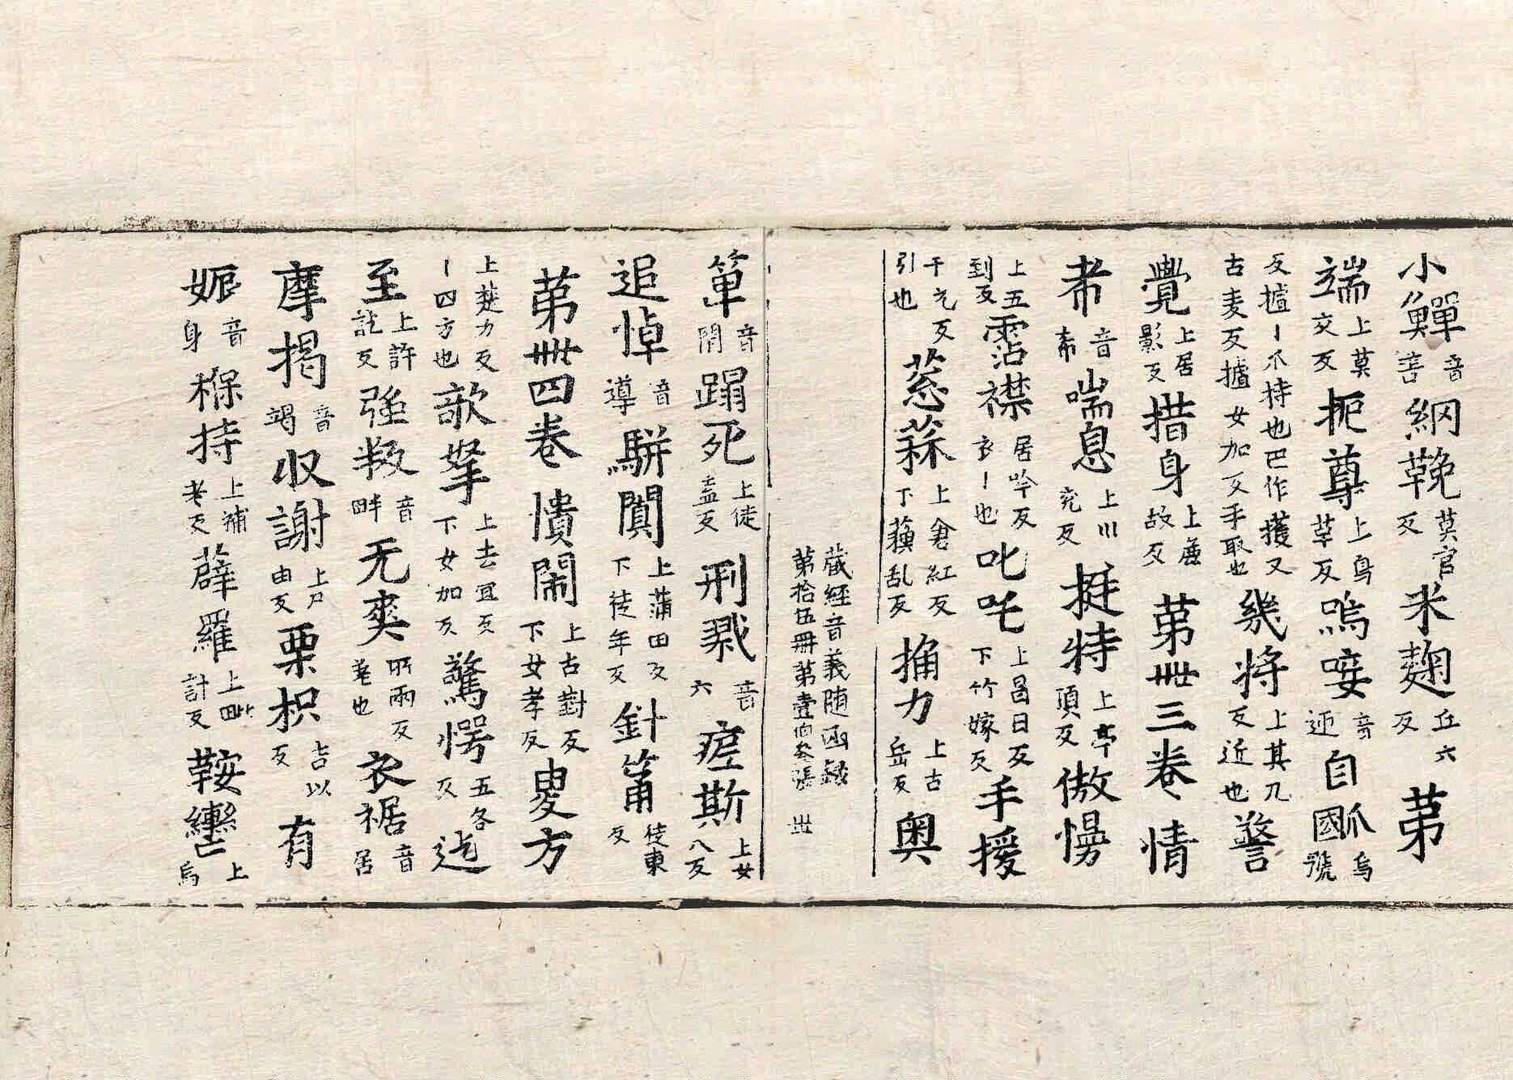 小鱓音善網鞔莫官反米麹丘六反第
端上莫交反扼尊上烏草反嗚咹音迊自國爪烏號
反摣一爪持也巴作摣又古麦反攎女加反手取也幾將上其几反近也警
覺上居影反措身上蒼故反第卅三卷情
希音素喘息上川兖反挺特上亭頂反傲慢
上五到反霑襟居吟反衣一也叱吒上昌日反下竹嫁反手援
于元反引也葱蒜上倉紅反下蘓乱反捔力上古岳反奧
藏經音義随函録第拾伍冊第壹伯叁張
箄音閇蹋死上徒盍反刑戮音六瘧斯上女八反
追悼音導駢闐上蒲田反下徒年反針筩徒東反
第卅四卷憒閙上古對反下女孝反叟方
上楚力反一四方也歌拏上去宜反下女加反驚愕五各反迄
至上許訖反強叛音畔无爽所兩反差也衣裾音居
摩揭音竭収謝上尸由反栗枳吉以反有
娠音身褓持上補老反薜羅上毗計反鞍轡上烏